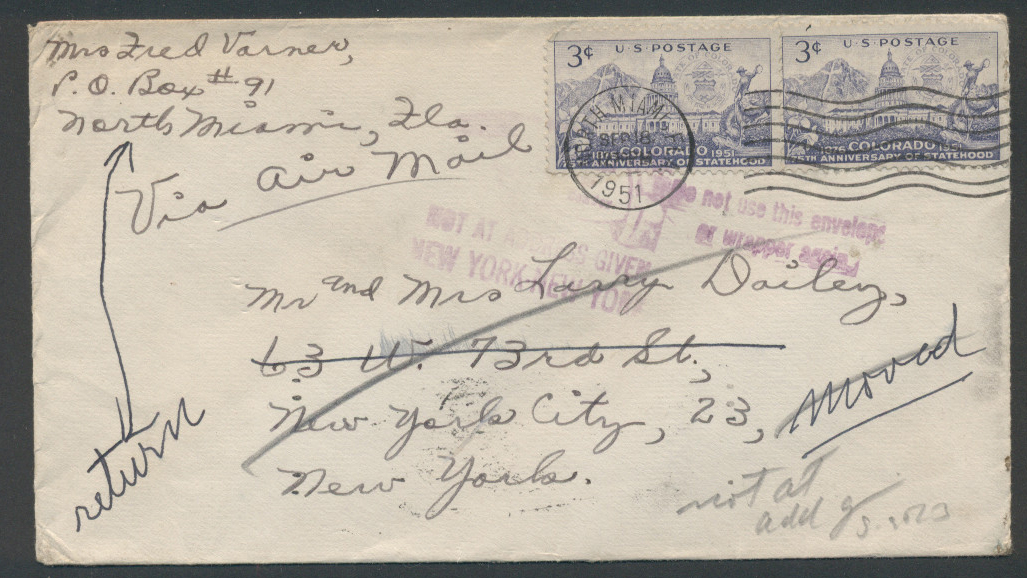 Mrs Fred Varner,
P.O. Box #91
North Miami, Fla.
Via Air Mail
3¢ U·S·POSTAGE
COLORADO
1876 1951
75TH ANNIVERSARY OF STATEHOOD
3¢ U·S·POSTAGE
COLORADO
1876 1951
75TH ANNIVERSARY OF STATEHOOD
NORTH MIAMI
SEP 18
1951
do not use this envelope
or wrapper again
NOT AT ADDRESS GIVEN
NEW YORK NEW YORK
Mr and Mrs Larry Dailey,
63 W. 73rd St.,
New York City, 23,
New York.
Moved
return
not at
add g